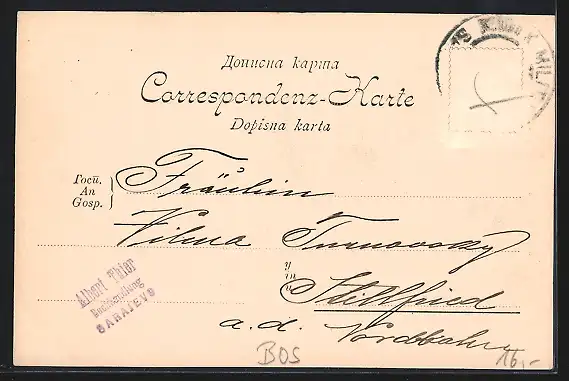 K. u. K. MIL. P
Дописна карта
Correspondenz-Karte
Dopisna karta
Госп.
An
Gosp.
Fräulein
Vilma Turnovský
у
in
u
Stillfried
a. d. Nordbahn
Albert Thier
Buchhandlung
SARAJEVO
BOS
16,-